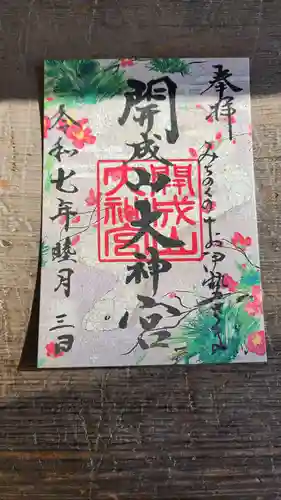 奉拝
みちのくのお伊勢さま
開成山大神宮
開成山
大神宮
令和七年睦月三日